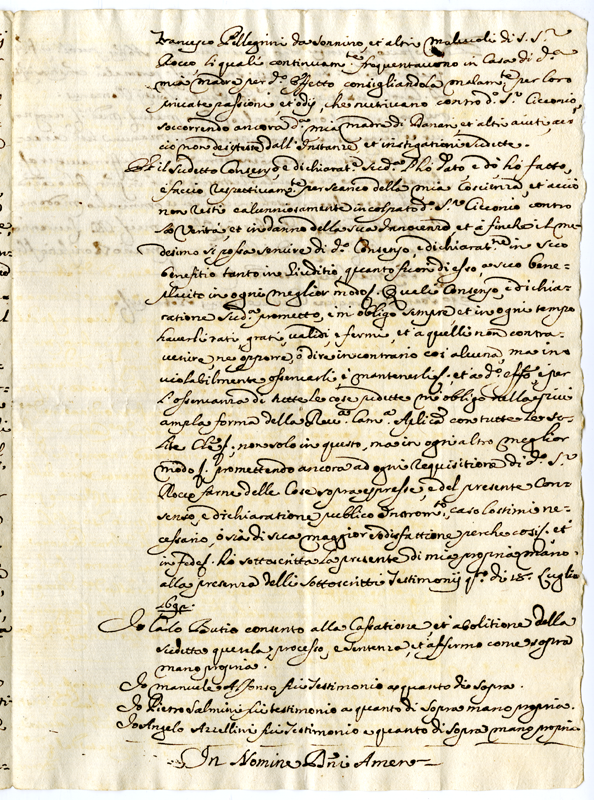 Francesco Pellegrini da Sonnino, et altri malevoli di d.º S.r
Rocco li quali continuam.te frequentavono in Casa di d.a
mia madre per d.º effetto consigliandola malam.te per loro
private passioni, et odij, che nutrivano contro d.º S.r Cicconio,
soccorrendo ancora d.a mia madre di danari, et altri aiuti, ac-
ciò non desistesse dall'Instanze, et instigationi sudette.
Et il sudetto Consenso, e dichiarat.ne sud.a l'ho dato, e dò, hò fatto,
e faccio respettivam.te per scarico della mia Coscienza, et acciò
non resti calunniosamente incolpato d.º S.r Cicconio contro
la verità, et in danno della sua Innocenza, et à fine che il me-
desimo si possa servire di d.º Consenso, e dichiarat.ne in suo
benefitio tanto in Giuditio, quanto fuori di esso, a suo bene-
placito in ogni meglior modo. Quali Consenso, e dichia-
ratione sud.a prometto, e m'obligo sempre, et in ogni tempo
haverli rati, grati, validi, e fermi, et a quelli non contra-
venire, ne opporre, ò dire in contrario cosi alcuna, ma in-
violabilmente osservarli, e mantenerli, et a d.º eff.º e per
l'osservanza di tutte le cose sudette m'obligo nella piu
ampla forma della Rev.a Cam.a Aplica con tutte le so-
lite non solo in questo, ma in ogni altro meglior
modo promettendo ancora ad ogni requisitione di d.º S.r
Rocco farne delle Cose sopra espresse, e del presente Con-
senso, e dichiaratione publico Instrom.to, caso lo stimi ne-
cessario, ò sia di sua maggior sodisfattione perche cosi et
in fede hò sottoscritta la presente di mia propria mano
alla presenza delli sottoscritti Testimonij q.sto di 18 Luglio
169
Io Carlo Butio consento alla Cassatione, et abolitione della
sudetta querela, processo, e sentenza, et affermo come sopra
mano propria.
Io manuele Affonso fui Testimonio a quanto di Sopra.
Io Pietro Salmini fui testimonio a quanto di Sopra mano propria.
Io Angelo Azzellini fui Testimonio e quanto di Sopra mano propria
In Nomine Dni Amen